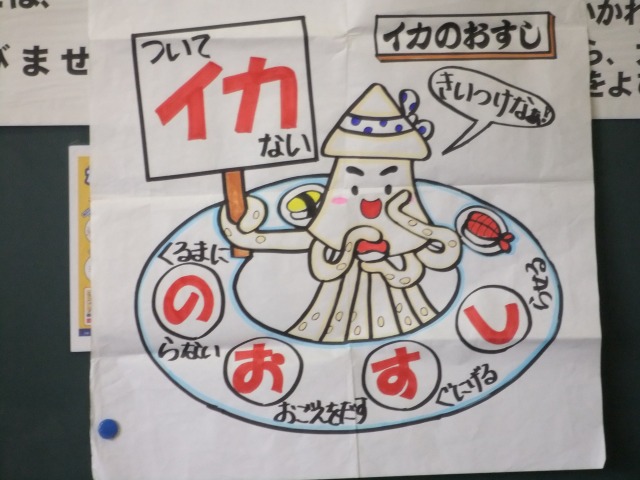 は、
びませ
いかわ
ら、
をよ
イカのおすし
きいつけなぁ!
ついて
イカ
ない
くるまに
の
らない
お
おごえをだす
す
ぐにげる
し
らせる